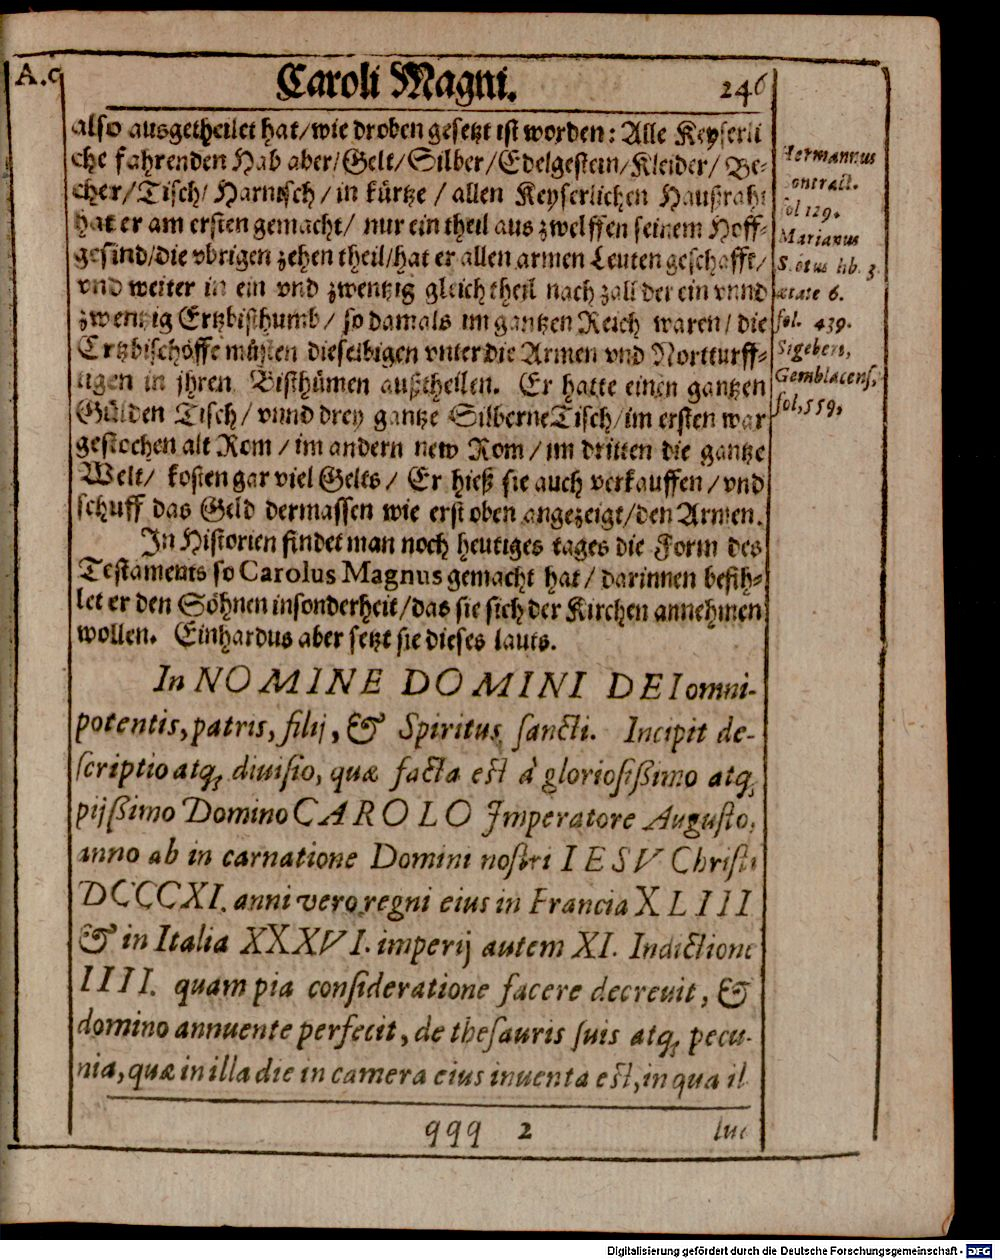 A.C
Caroli Magni.
246
also ausgetheilet hat/wie droben gesetzt ist worden: Alle Keyserli
che fahrenden Hab aber/Gelt/Silber/Edelgestein/Kleider/Be-
cher/Tisch/Harnisch/in kürtze/allen Keyserlichen Haußraht
hat er am ersten gemacht/nur ein theil aus zwelffen seinem Hoff-
gesind/die vbrigen zehen theil/hat er allen armen Leuten geschafft/
vnd weiter in ein vnd zwentzig gleich theil nach zall der ein vnnd
zwentzig Ertzbisthumb/so damals im gantzen Reich waren/die
Ertzbischöffe müsten dieselbigen vnter die Armen vnd Nortturff-
tigen in jhren Bisthümen außtheilen. Er hatte einen gantzen
Gülden Tisch/vnnd drey gantze Silberne Tisch/im ersten war
gestochen alt Rom/im andern new Rom/im dritten die gantze
Welt/kosten gar viel Gelts/Er hieß sie auch verkauffen/vnd
schuff das Geld dermassen wie erst oben angezeigt/den Armen.
In Historien findet man noch heutiges tages die Form des
Testaments so Carolus Magnus gemacht hat/darinnen befih-
let er den Söhnen insonderheit/das sie sich der Kirchen annehmen
wollen. Einhardus aber setzt sie dieses lauts.
In NOMINE DOMINI DEI omni-
potentis, patris, filij, & Spiritus sancti. Incipit de-
scriptio atq; diuisio, quæ facta est à gloriosißimo atq;
pijßimo Domino CAROLO Imperatore Augusto,
anno ab in carnatione Domini nostri IESV Christi
DCCCXI. anni vero regni eius in Francia XLIII
& in Italia XXXVI. imperij autem XI. Indictione
IIII. quam pia consideratione facere decreuit, &
domino annuente perfecit, de thesauris suis atq; pecu-
nia, quæ in illa die in camera eius inuenta est, in qua il
qqq 2
luc
Hermannus
Contract.
fol 129.
Marianus
Scotus lib. 3.
ætate 6.
fol. 439.
Sigebert,
Gemblacens,
fol, 559,
Digitalisierung gefördert durch die Deutsche Forschungsgemeinschaft - DFG